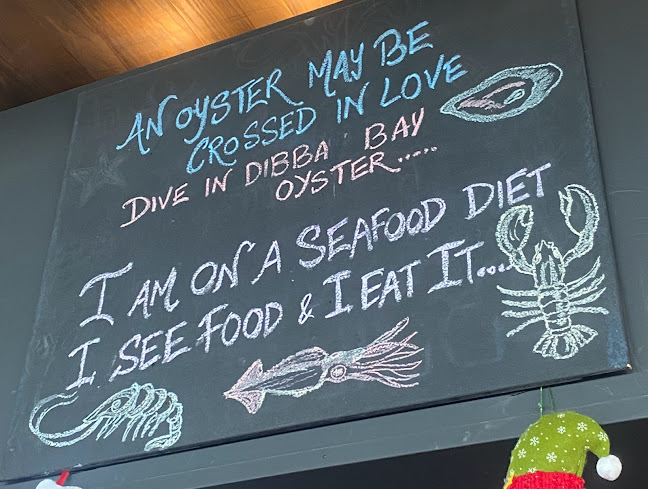 AN OYSTER MAY BE
CROSSED IN LOVE
DIVE IN DIBBA BAY
OYSTER.....
I AM ON A SEAFOOD DIET
I SEE FOOD & I EAT IT....